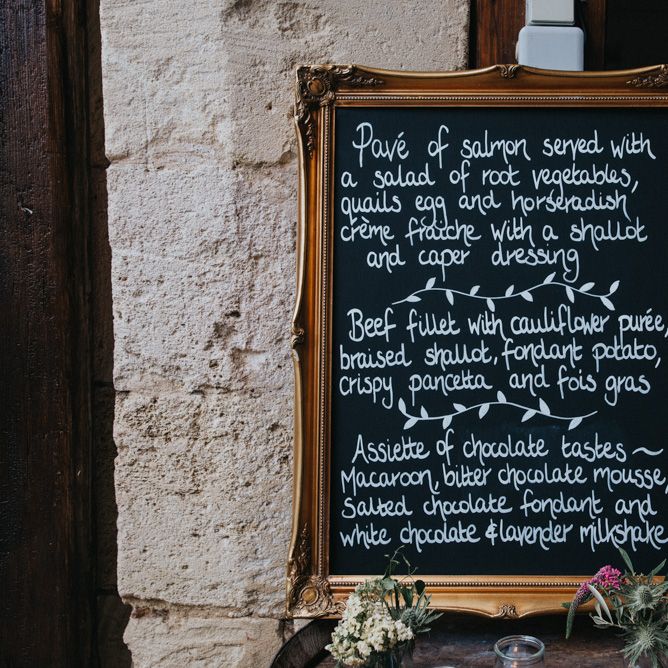 Pavé of salmon served with
a salad of root vegetables,
quails egg and horseradish
crème fraîche with a shallot
and caper dressing
Beef fillet with cauliflower purée,
braised shallot, fondant potato,
crispy pancetta and fois gras
Assiette of chocolate tastes ~
Macaroon, bitter chocolate mousse,
Salted chocolate fondant and
white chocolate & lavender milkshake